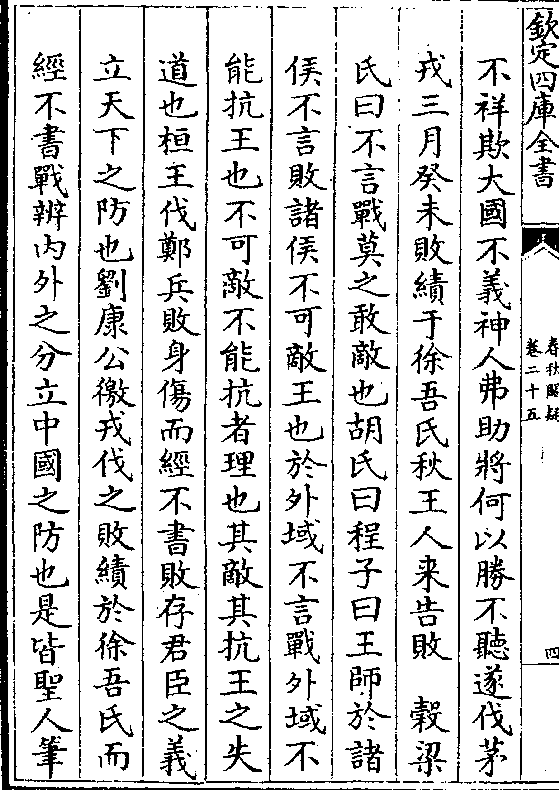 欽定四庫全書
春秋闕疑
卷二十五
四
不祥欺大國不義神人弗助將何以勝不聽遂伐茅
戎三月癸未敗績于徐吾氏秋王人来告敗　榖梁
氏曰不言戰莫之敢敵也胡氏曰程子曰王師於諸
侯不言敗諸侯不可敵王也於外域不言戰外域不
能抗王也不可敵不能抗者理也其敵其抗王之失
道也桓王伐鄭兵敗身傷而經不書敗存君臣之義
立天下之防也劉康公徼戎伐之敗績於徐吾氏而
經不書戰辨内外之分立中國之防也是皆聖人筆